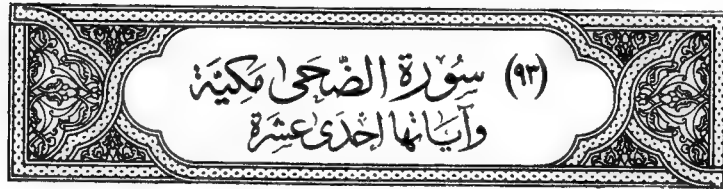 (٩٣) سُورَة الضّحَى مَكيّة
وَآيَاتهَا إحْدَى عَشرَة